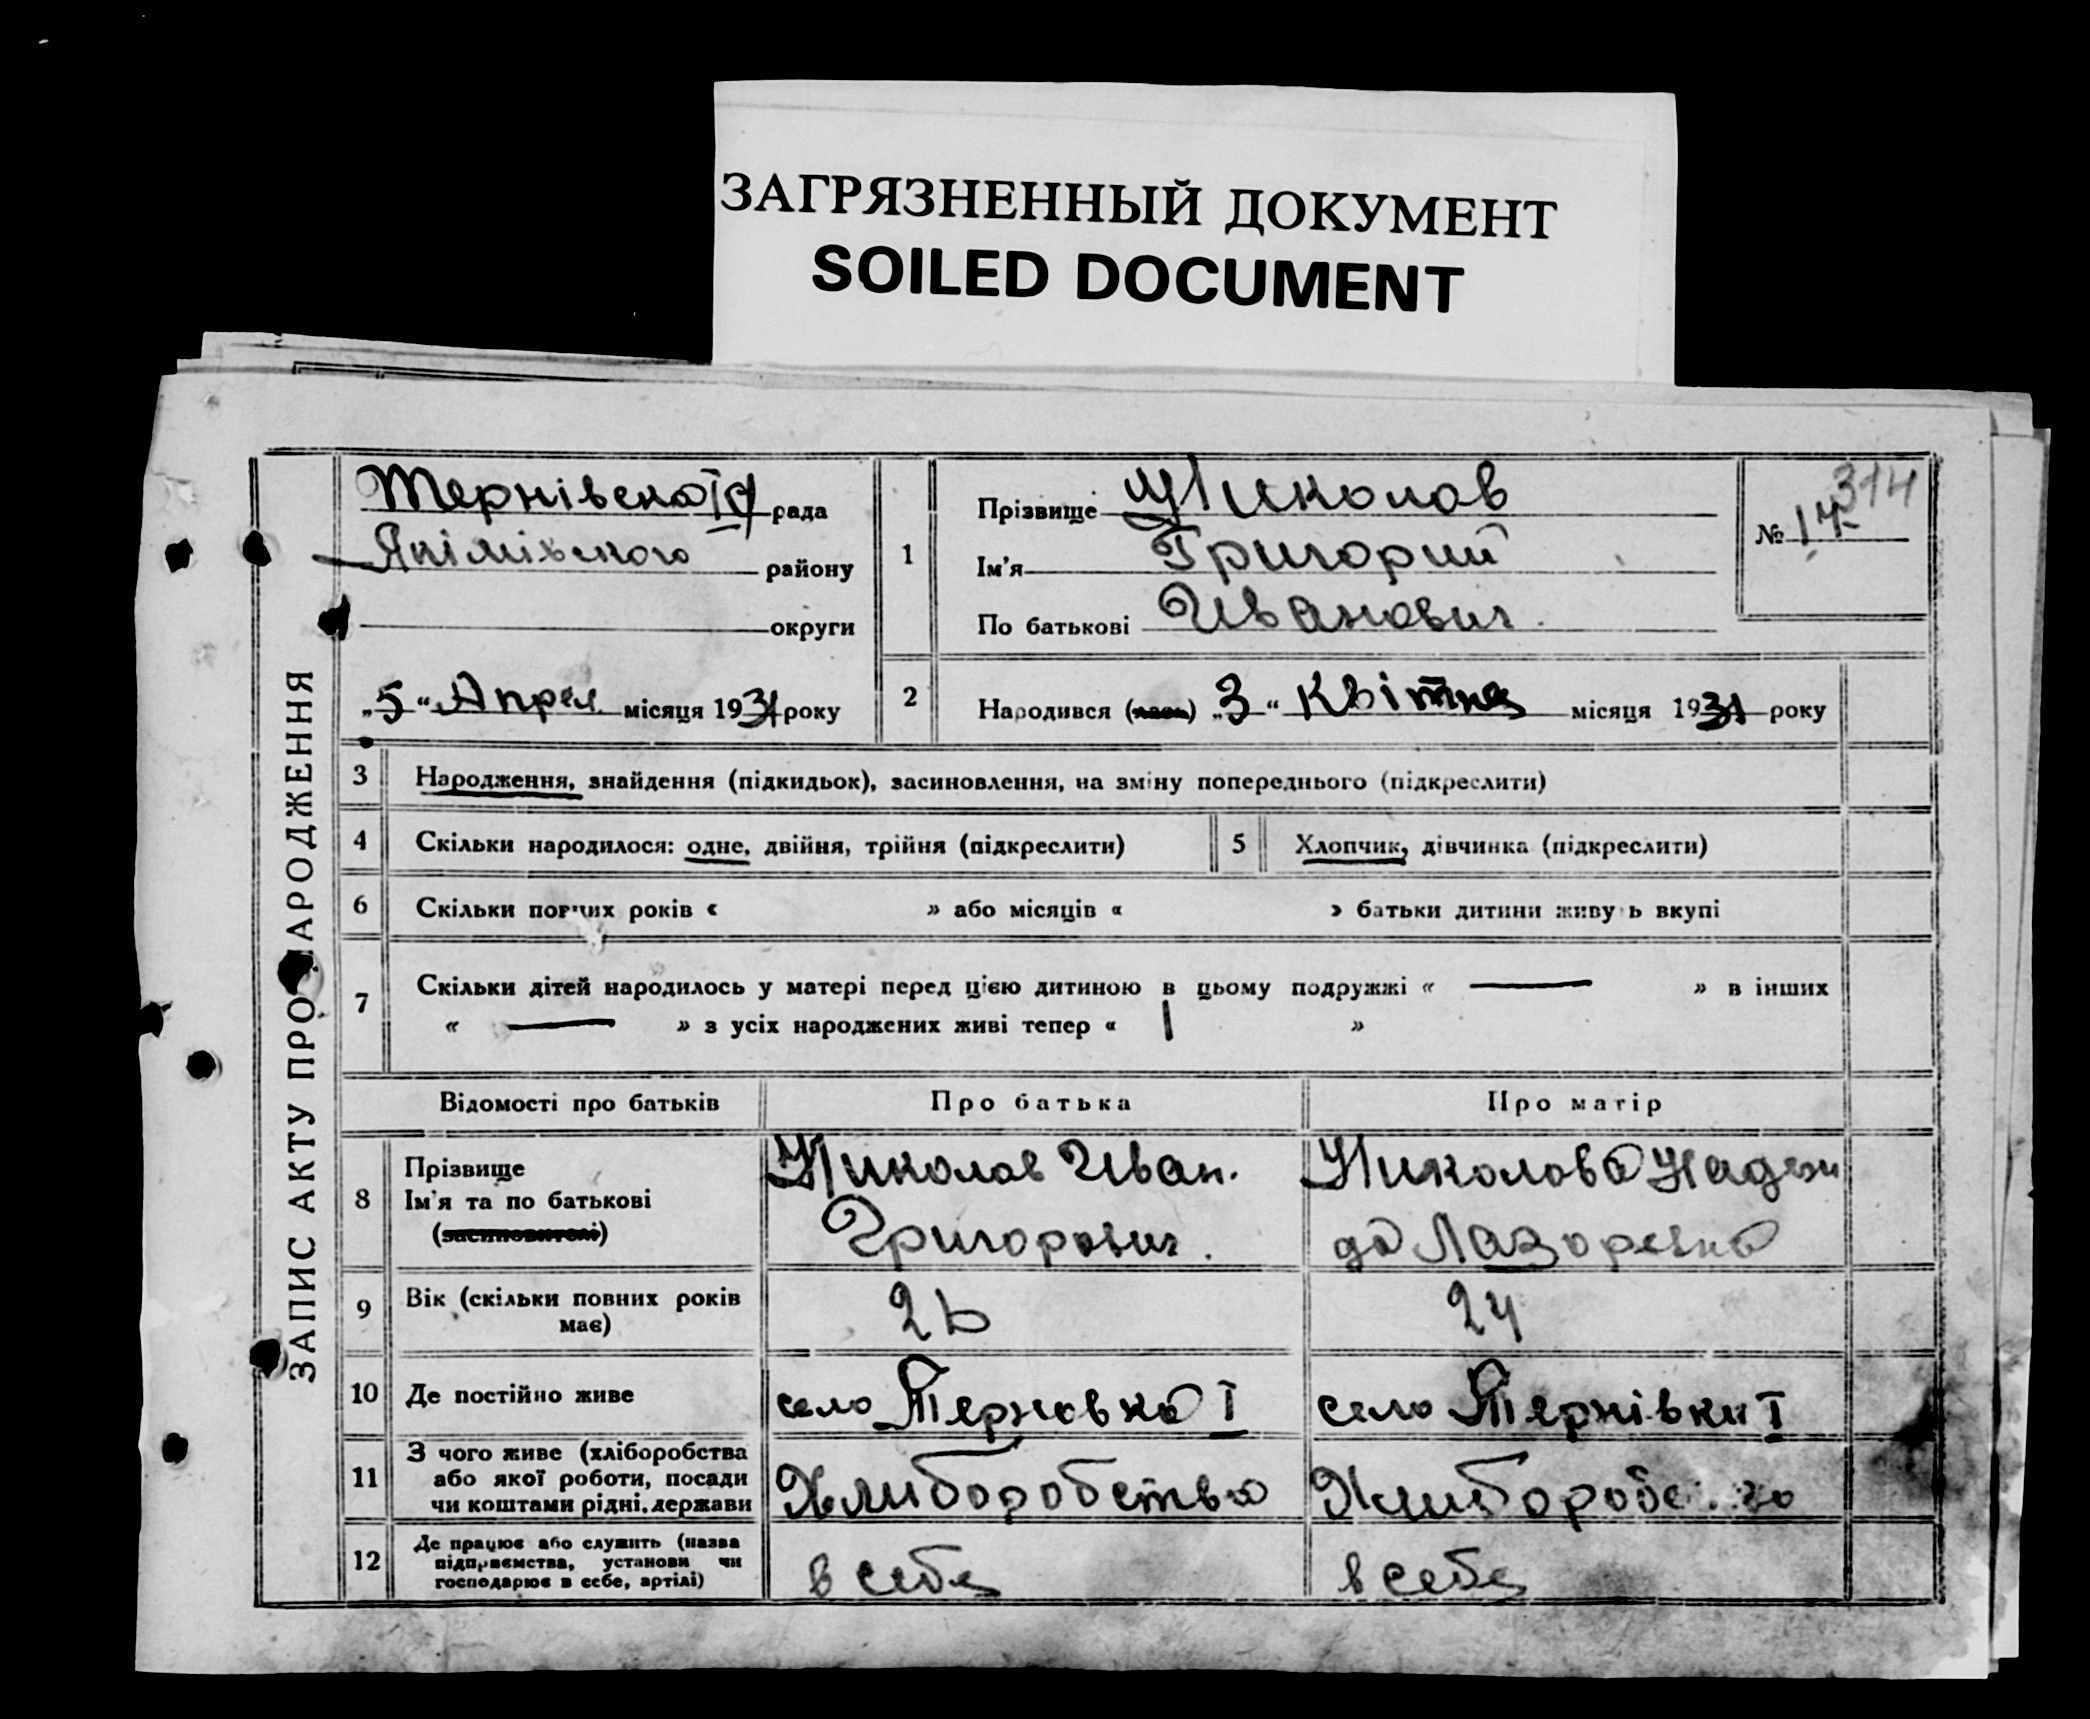 ЗАГРЯЗНЕННЫЙ ДОКУМЕНТ
SOILED DOCUMENT
ЗАПИС АКТУ ПРО НАРОДЖЕННЯ
Тернівско I рада
Якімівского району
округи
„5“ Апрел місяця 1931 року
1
Прізвище Николов
Ім'я Григорий
По батькові Иванович
314
№ 17
2
Народився () „3“ Квітня місяця 1931 року
3 Народження, знайдення (підкидьок), засиновлення, на зміну попереднього (підкреслити)
4 Скільки народилося: одне, двійня, трійня (підкреслити)
5 Хлопчик, дівчинка (підкреслити)
6 Скільки повних років « » або місяців « » батьки дитини живуть вкупі
7 Скільки дітей народилось у матері перед цією дитиною в цьому подружжі « — » в інших
« — » з усіх народжених живі тепер « 1 »
Відомості про батьків Про батька Про матір
8 Прізвище
Ім'я та по батькові
(засиновителі)
Николов Иван.
Григорович.
Николова Надеж
да Лазоревна
9 Вік (скільки повних років
має)
26
24
10 Де постійно живе
село Терновка I
село Тернівки I
11 З чого живе (хліборобства
або якої роботи, посади
чи коштами рідні, держави
Хлиборобства
12 Де працює або служить (назва
підприємства, установи чи
господарює в себе, артілі)
в себе
в себе